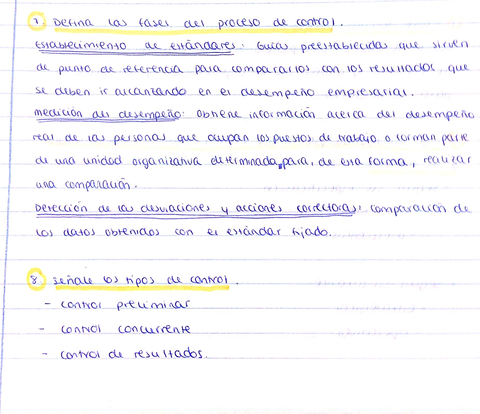 7. Defina las fases del proceso de control.
Establecimiento de estándares: Guías preestablecidas que sirven
de punto de referencia para compararlos con los resultados que
se deben ir alcanzando en el desempeño empresarial.
Medición del desempeño: Obtiene información acerca del desempeño
real de las personas que ocupan los puestos de trabajo o forman parte
de una unidad organizativa determinada, para, de esta forma, realizar
una comparación.
Detección de las desviaciones y acciones correctoras: comparación de
los datos obtenidos con el estándar fijado.
8. Señale los tipos de control.
- control preliminar
- control concurrente
- control de resultados.